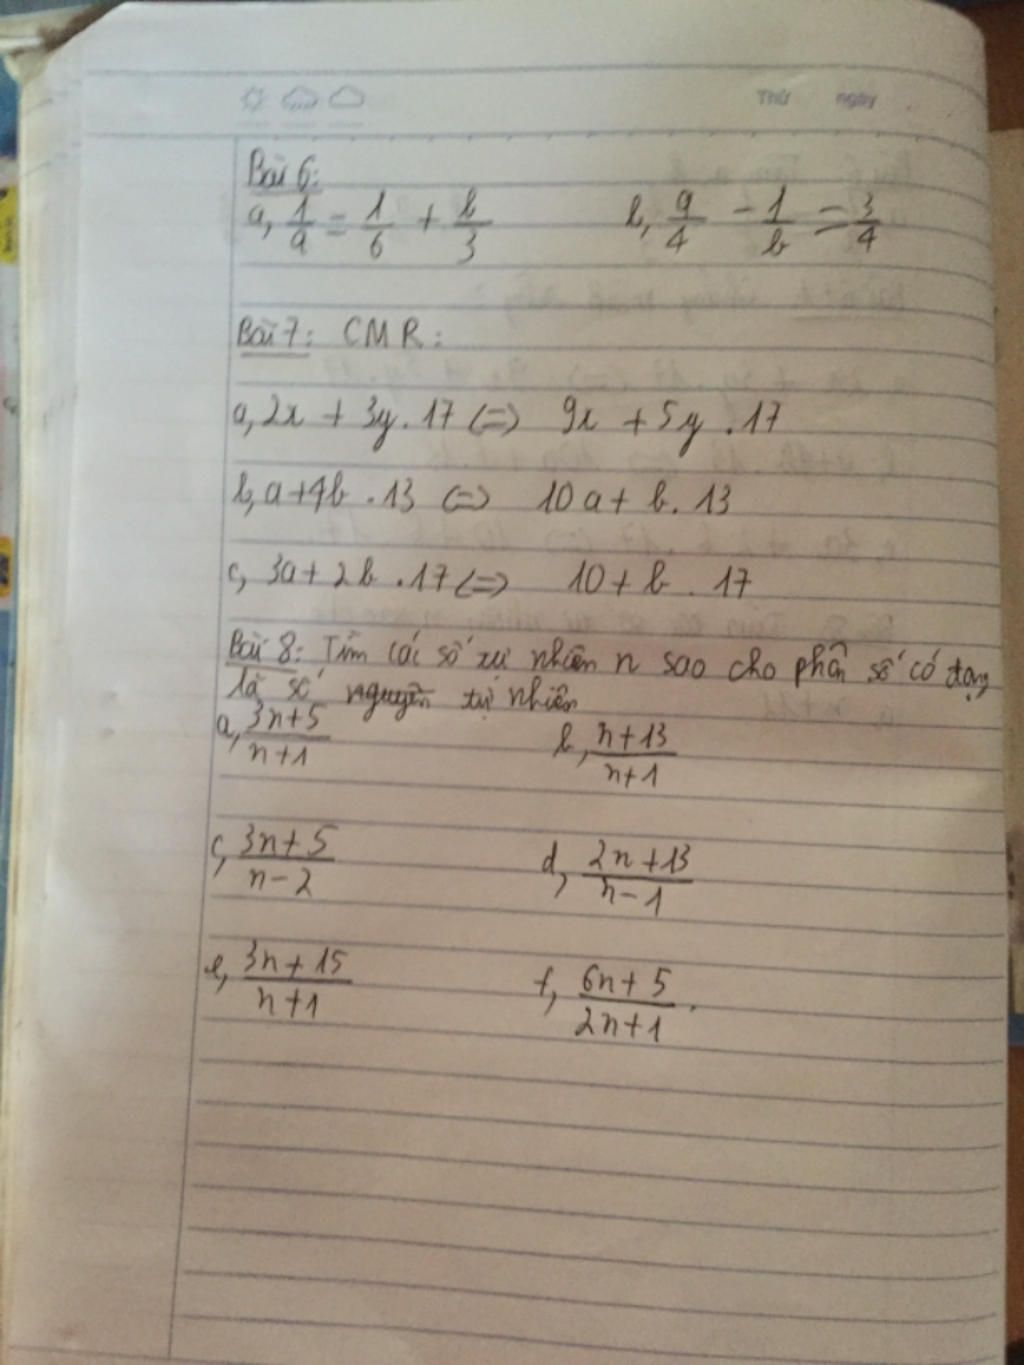 Thứ ngày
Bài 6:
a, 1/a = 1/6 + b/3 b, a/4 - 1/b = 3/4
Bài 7: CMR:
a, 2x + 3y . 17 <=> 9x + 5y . 17
b, a + 4b . 13 <=> 10a + b . 13
c, 3a + 2b . 17 <=> 10 + b . 17
Bài 8: Tìm các số tự nhiên n sao cho phân số có dạng
là số nguyên tự nhiên
a, 3n+5/n+1 b, n+13/n+1
c, 3n+5/n-2 d, 2n+13/n-1
e, 3n+15/n+1 f, 6n+5/2n+1.